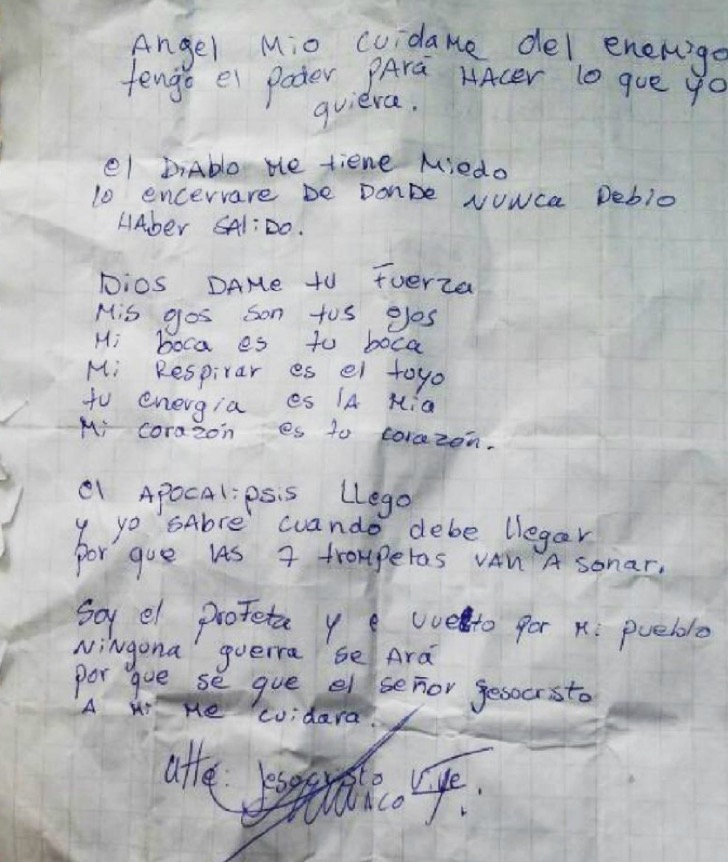 Angel Mio cuidame del enemigo
tengo el poder PARA HACER lo que yo
quiera.
el DiAblo Me tiene Miedo
lo encerrare De DonDe NUNca Debio
HAber SAliDo.
Dios DAMe tu Fuerza
Mis ojos son tus ejos
Mi boca es tu boca
Mi Respirar es el tuyo
tu energia es lA Mia
Mi corazón es tu corazón.
el APOCAlipsis LLego
y yo SAbre cuando debe llegar
por que lAS 7 trompetas VAN A sonar.
Soy el profeta y e vuelto por Mi pueblo
NiNgona guerra se ArÁ
por que se que el señor jesocristo
A Mi Me cuidara.
Atte: Jesocristo Vive.